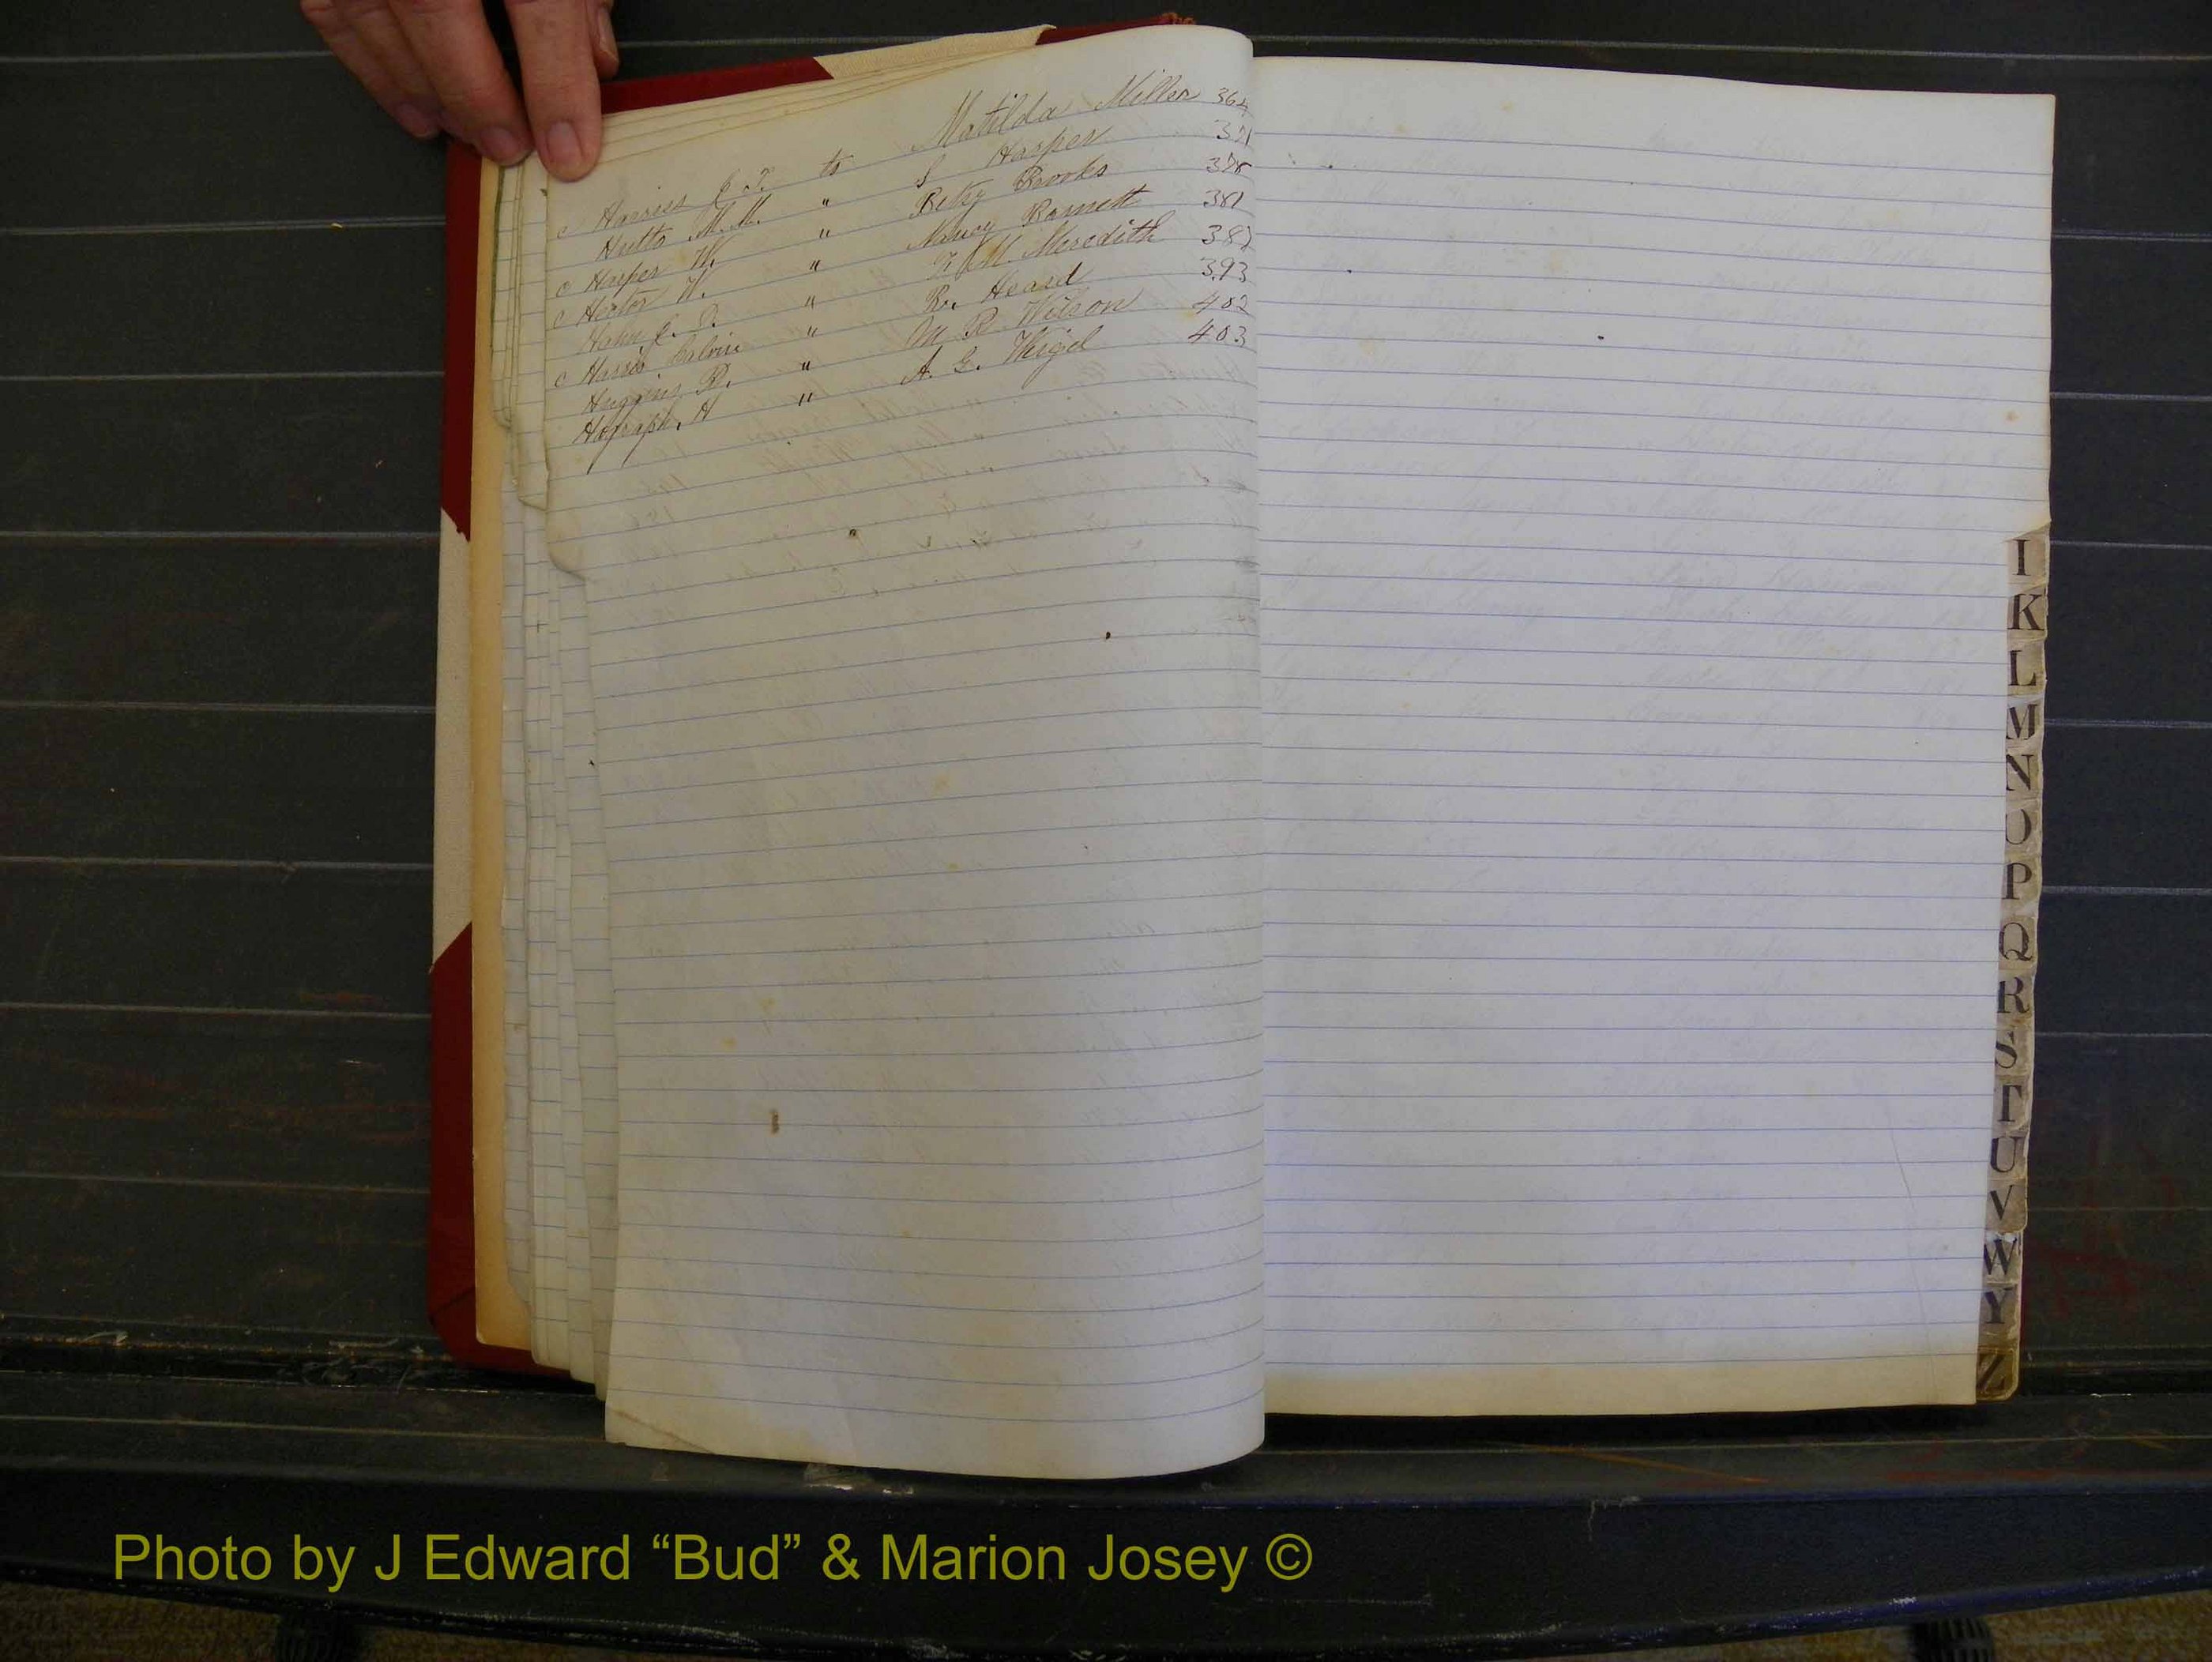 c Harries J. T. to Matilda Miller 364
Hutto M. M. " S Harper 371
c Harper W. " Betsy Brooks 378
c Hector W. " Nancy Barnett 381
Hahn J. D. " M. Meredith 387
c Harris Calvin " Heard 393
Huggins B. " M R Wilson 402
H " A. G. Weigel 403
I
K
L
M
N
O
P
Q
R
S
T
U
V
W
Y
Z
Photo by J Edward “Bud” & Marion Josey ©